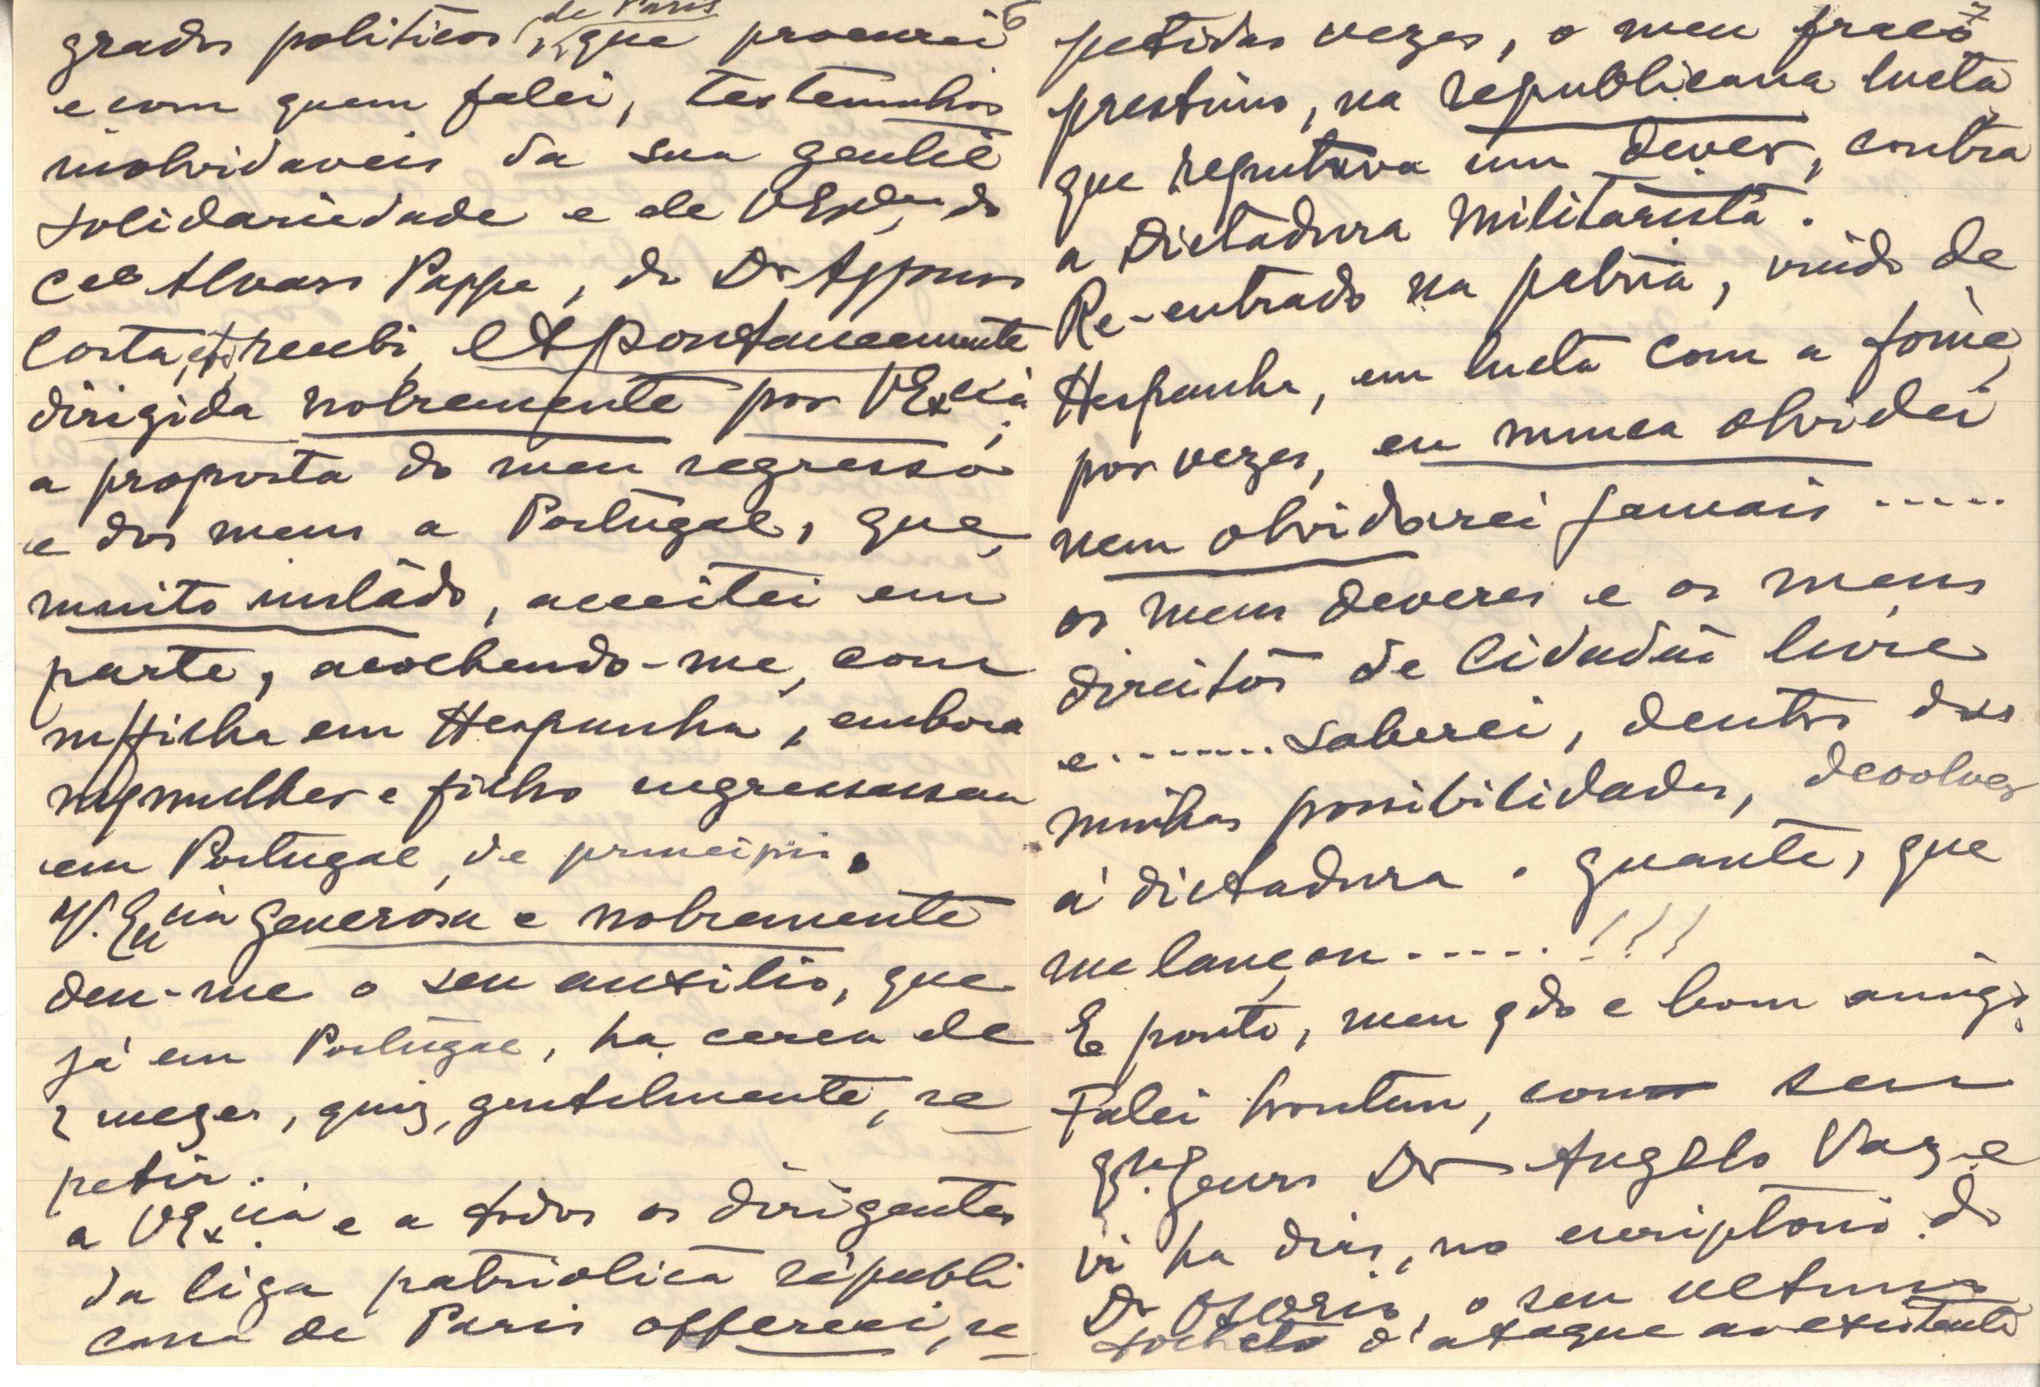 6
de Paris
grados politicos, que procurei
e com quem falei, testemunhos
inolvidaveis da sua gentil
solidariedade e de VExcia, do
Cel Alvaro Poppe, do Dr Affonso
Costa, recebi, expontaneamente
dirigida nobremente por VExcia,
a proposta do meu regresso
e dos meus a Portugal, que,
muito instádo, acceitei em
parte, acochendo-me, com
m/filha em Hespanha, embora
m/mulher e filho ingressassem
em Portugal, de principio.
V. Excia generosa e nobremente
deu-me o seu auxilio, que
já em Portugal, ha cerca de
2 mezes, quiz, gentilmente, re
petir.
a VExcia e a todos os dirigentes
da liga patriotica républi
cana de Paris offereci, re
7
petidas vezes, o meu fraco
prestimo, na republicana lucta
que reputava um dever, contra
a Dictadura Militarista.
Re-entrado na patria, vindo de
Hespanha, em lucta com a fome,
por vezes, eu nunca olvidei
nem olvidarei jamais .....
os meus deveres e os meus
direitos de Cidadão livre
e ........ saberei, dentro das
minhas possibilidades, devolver
á dictadura o guante, que
me lançou ..... !!!
E ponto, meu qdo e bom amigo.
Falei hontem, com seu
genro Dr Angelo Vaz e
vi ha dias, no escriptorio do
Dr Osorio, o seu ultimo
d'ataque ao existente